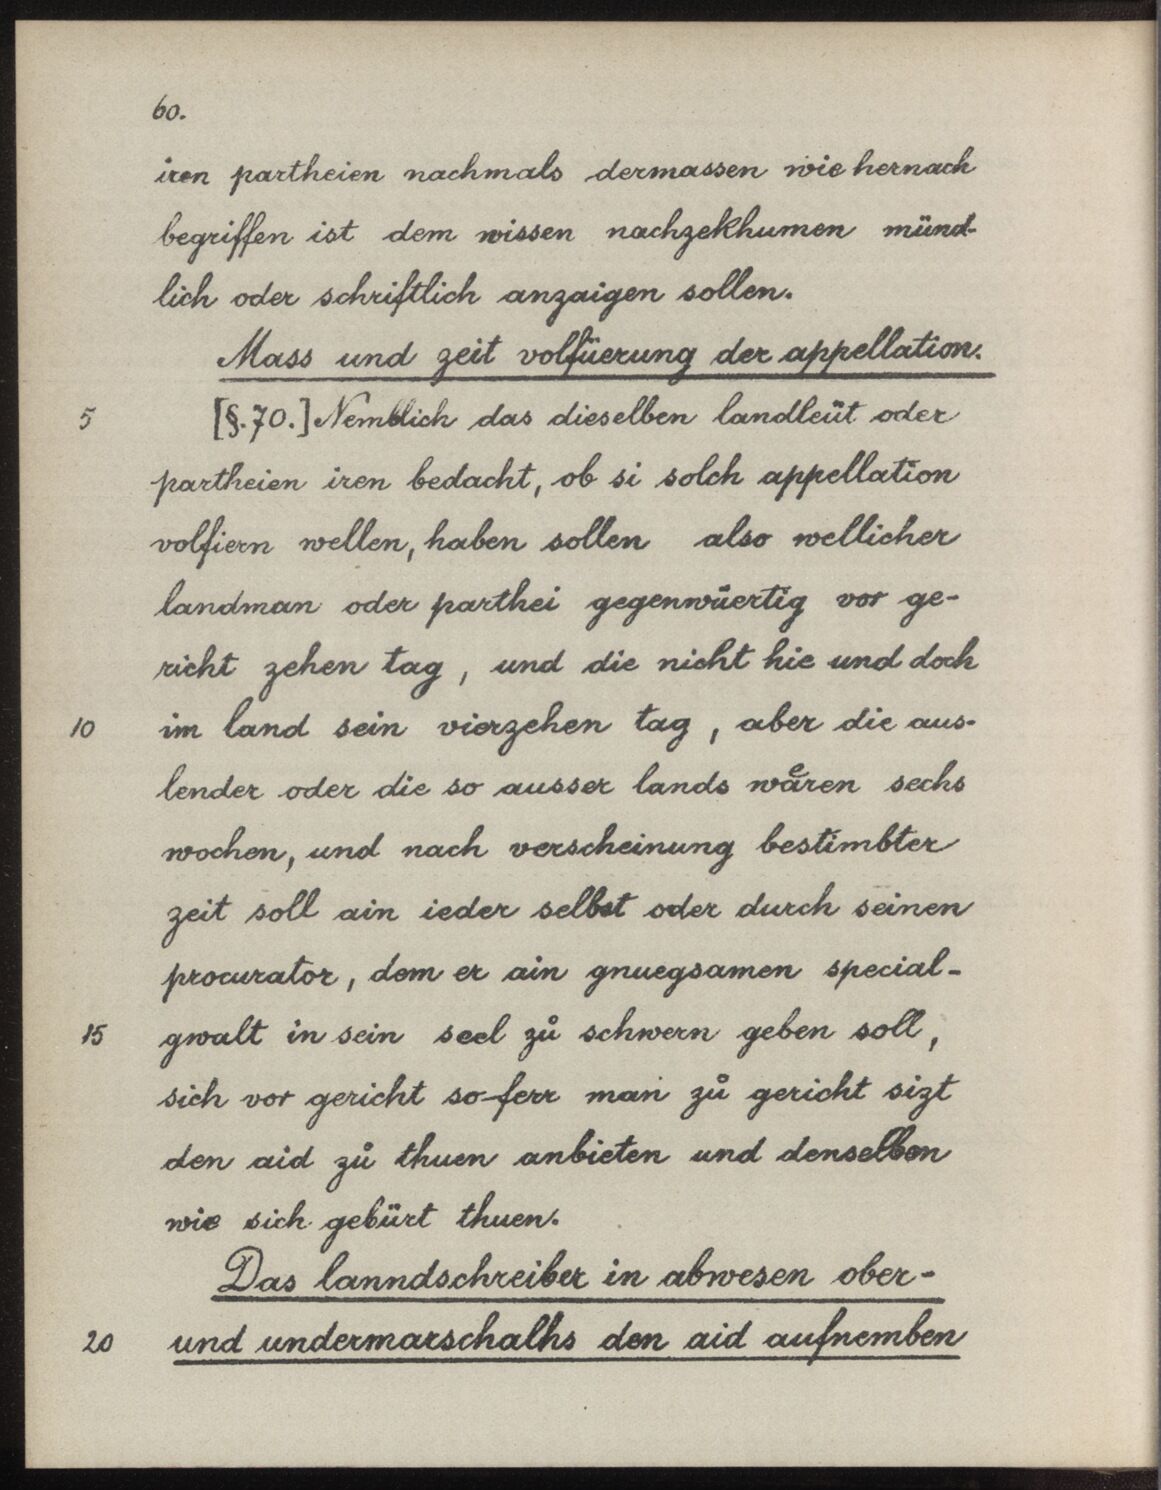 60.
iren partheien nachmals dermassen wie hernach
begriffen ist dem wissen nachzekhumen münd-
lich oder schriftlich anzaigen sollen.
Mass und zeit volfüerung der appellation.
5 [§.70.] Nemblich das dieselben landleüt oder
partheien iren bedacht, ob si solch appellation
volfiern wellen, haben sollen also wellicher
landman oder parthei gegenwüertig vor ge-
richt zehen tag, und die nicht hie und doch
10 im land sein vierzehen tag, aber die aus-
lender oder die so ausser lands waͤren sechs
wochen, und nach verscheinung bestimbter
zeit soll ain ieder selbst oder durch seinen
procurator, dem er ain gnuegsamen special-
15 gwalt in sein seel zů schwern geben soll,
sich vor gericht so-ferr man zů gericht sizt
den aid zů thuen anbieten und denselben
wie sich gebürt thuen.
Das lanndschreiber in abwesen ober-
20 und undermarschalhs den aid aufnemben